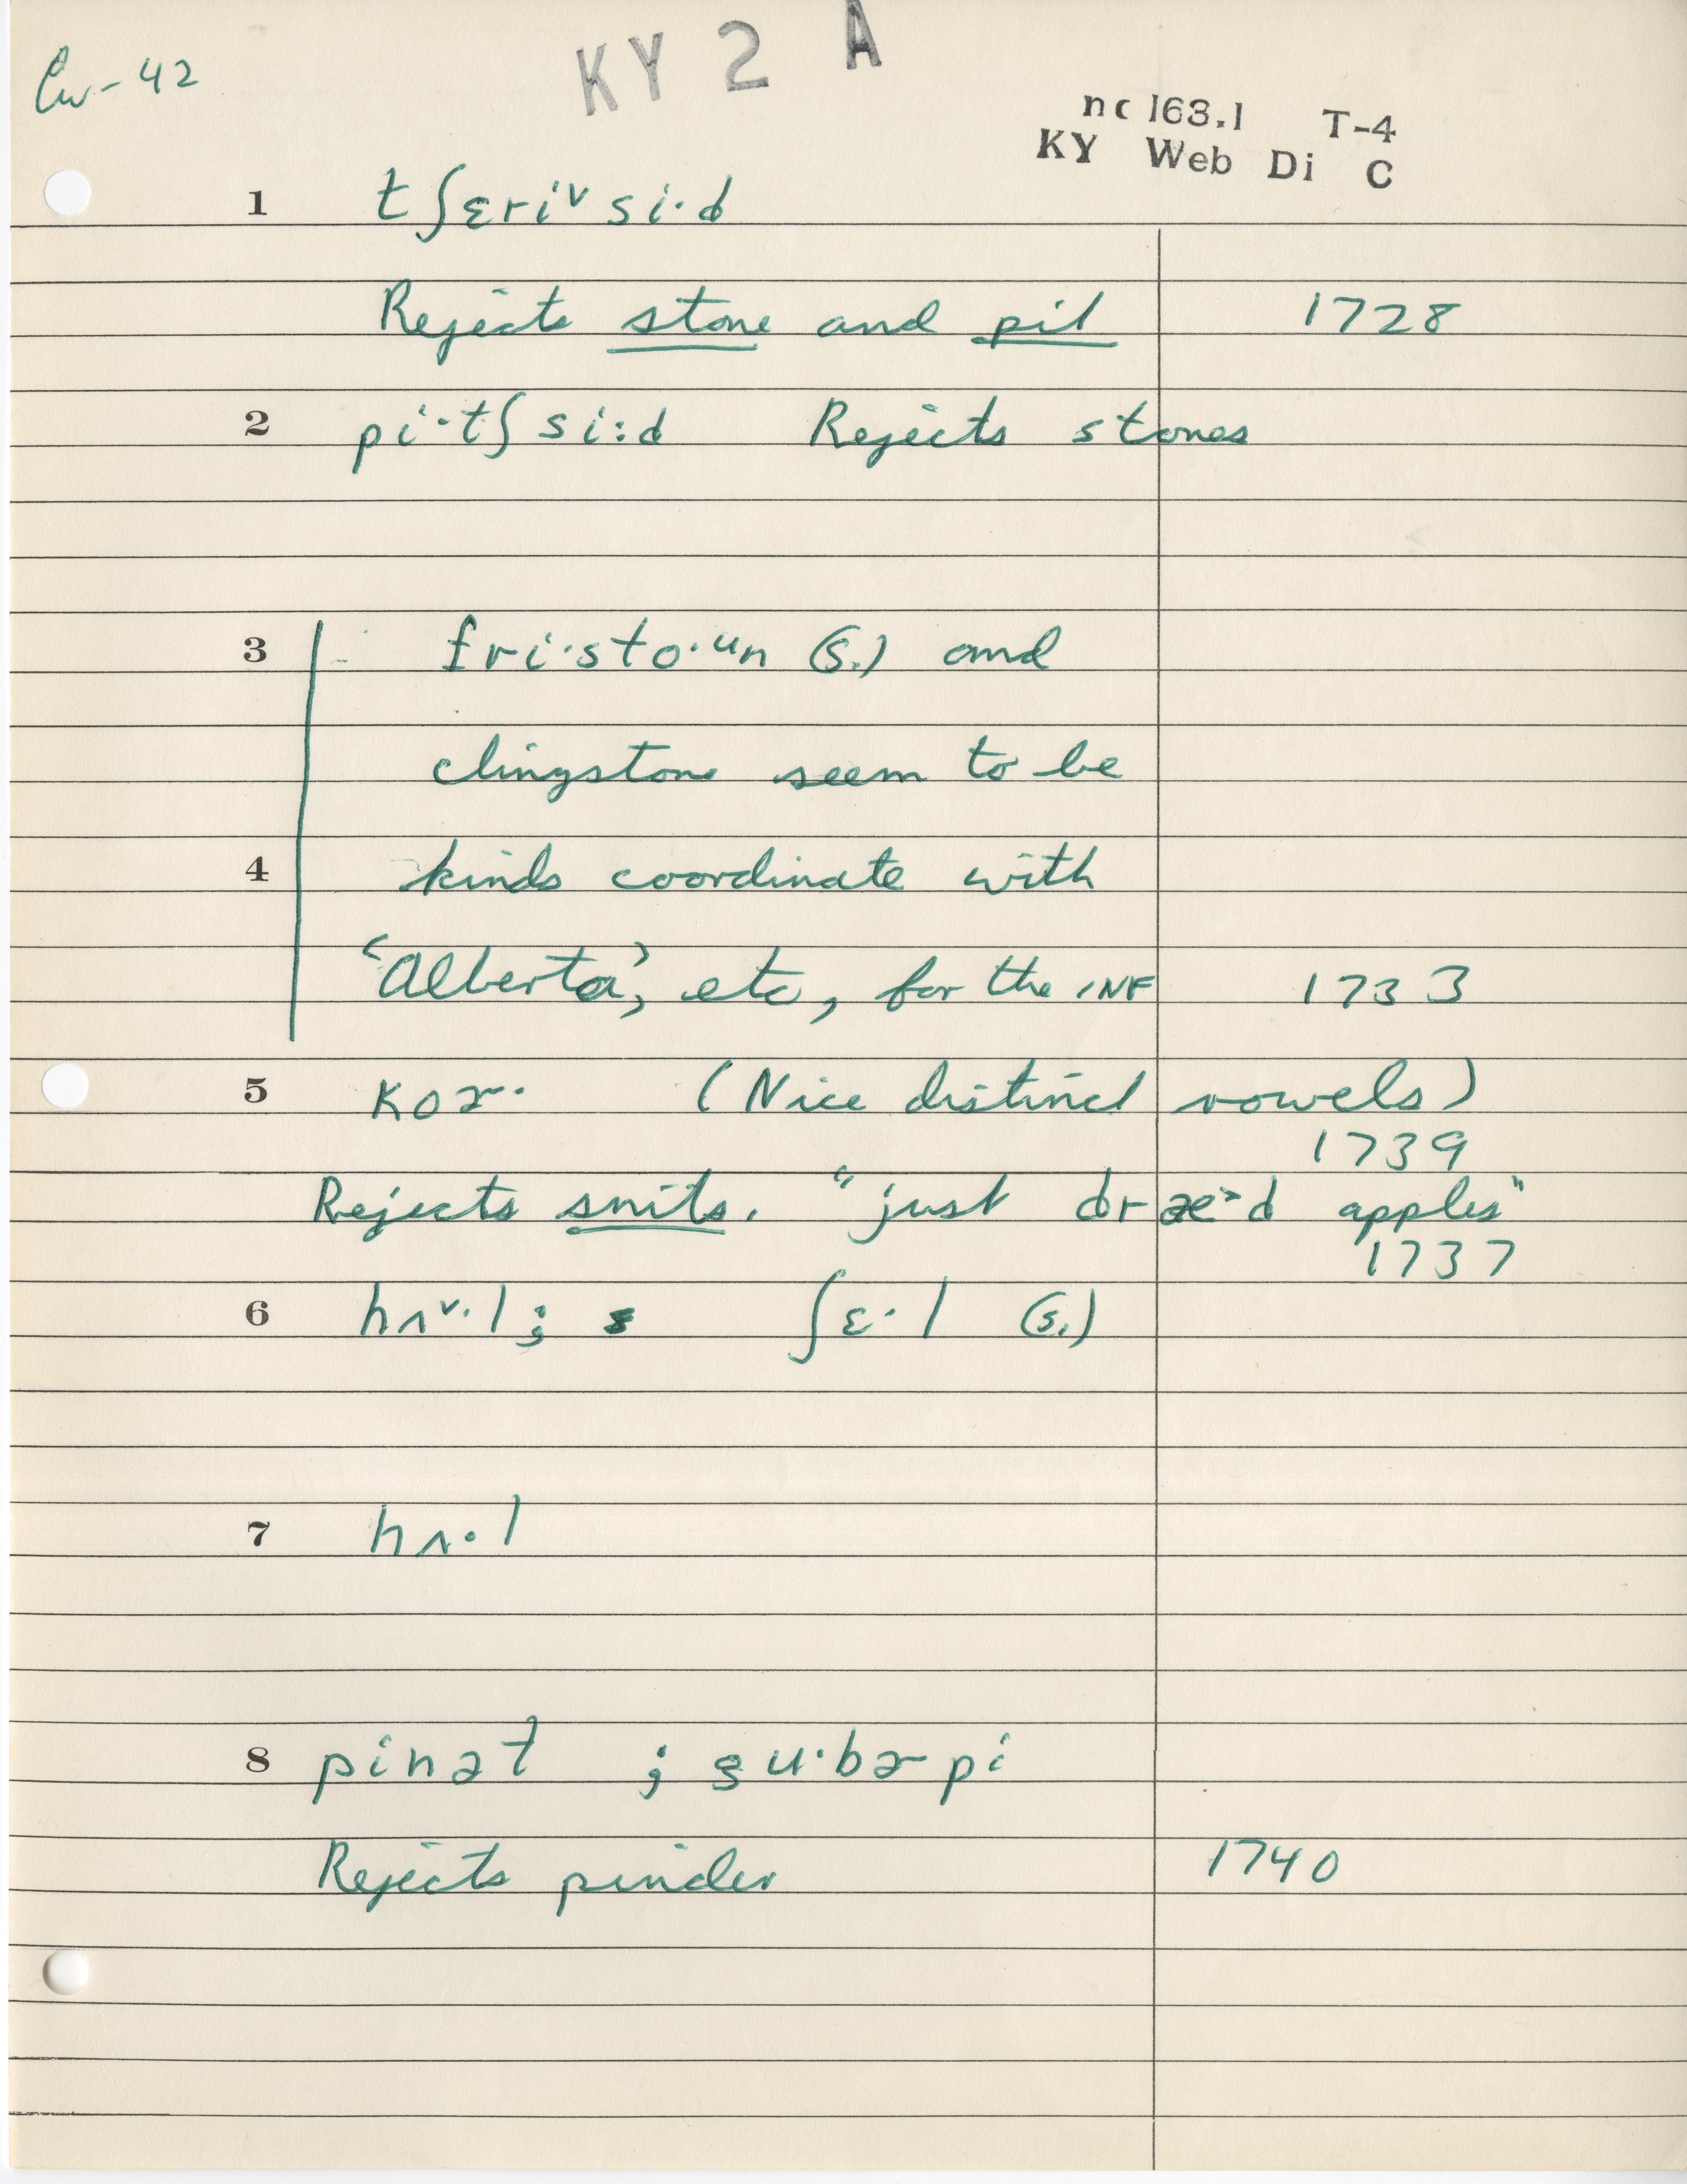 Cw-42
KY 2 A
nc 163.1 T-4
KY Web Di C
1 tʃɛriᵛ si·d
Rejects stone and pit 1728
2 pi·tʃ si:d Rejects stones
3 fri·sto·ᵘn (s.) and
clingstone seem to be
4 kinds coordinate with
"Alberta", etc, for the INF 1733
5 koɚ· (Nice distinct vowels)
1739
Rejects snits. "just dræ˃d apples"
1737
6 hʌᵛ·l; ʃɛ·l (s.)
7 hʌ·l
8 pinət ; gu·bɚpi
Rejects pinder 1740